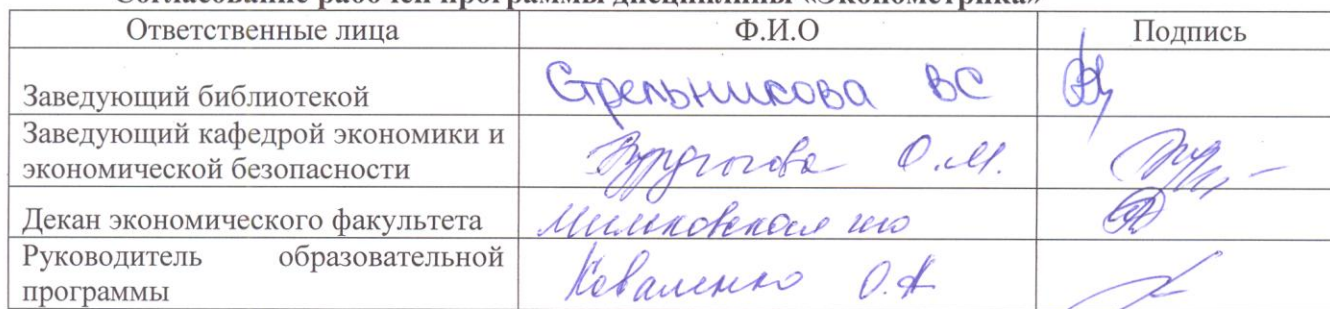 Согласование рабочей программы дисциплины «Эконометрика»
Ответственные лица Ф.И.О Подпись
Заведующий библиотекой Стрельникова ВС
Заведующий кафедрой экономики и
экономической безопасности О.М.
Декан экономического факультета
Руководитель образовательной
программы Коваленко О.А